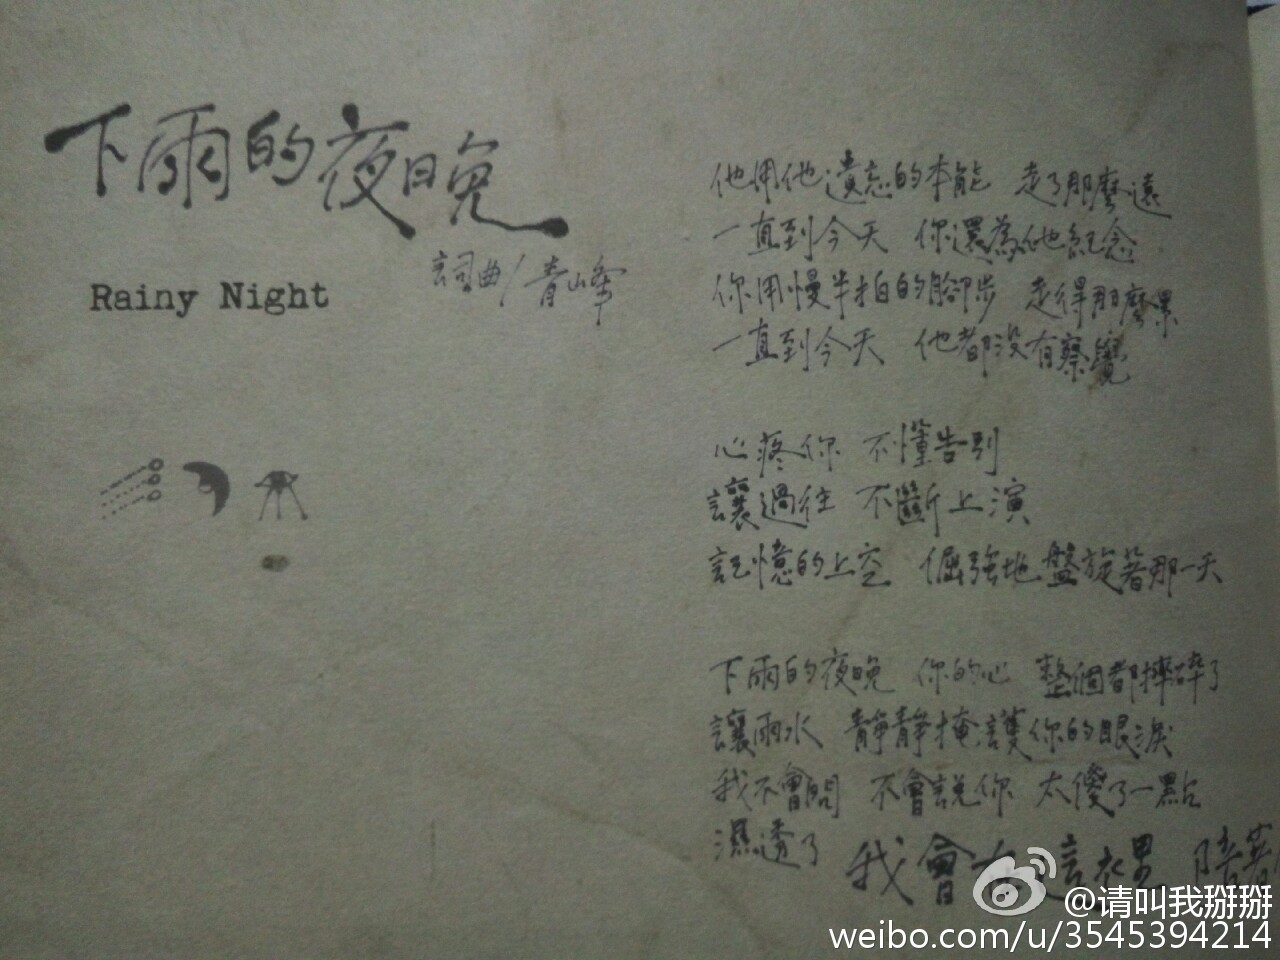 下雨的夜晚
詞曲/青峰
Rainy Night
他用他遺忘的本能 走了那麼遠
一直到今天 你還為他紀念
你用慢半拍的腳步 走得那麼累
一直到今天 他都沒有察覺
心疼你 不懂告別
讓過往 不斷上演
記憶的上空 倔強地盤旋著那一天
下雨的夜晚 你的心 整個都摔碎了
讓雨水 靜靜掩護你的眼淚
我不會問 不會說你 太傻了一點
濕透了
我會在這裡 陪著
@请叫我掰掰
weibo.com/u/3545394214